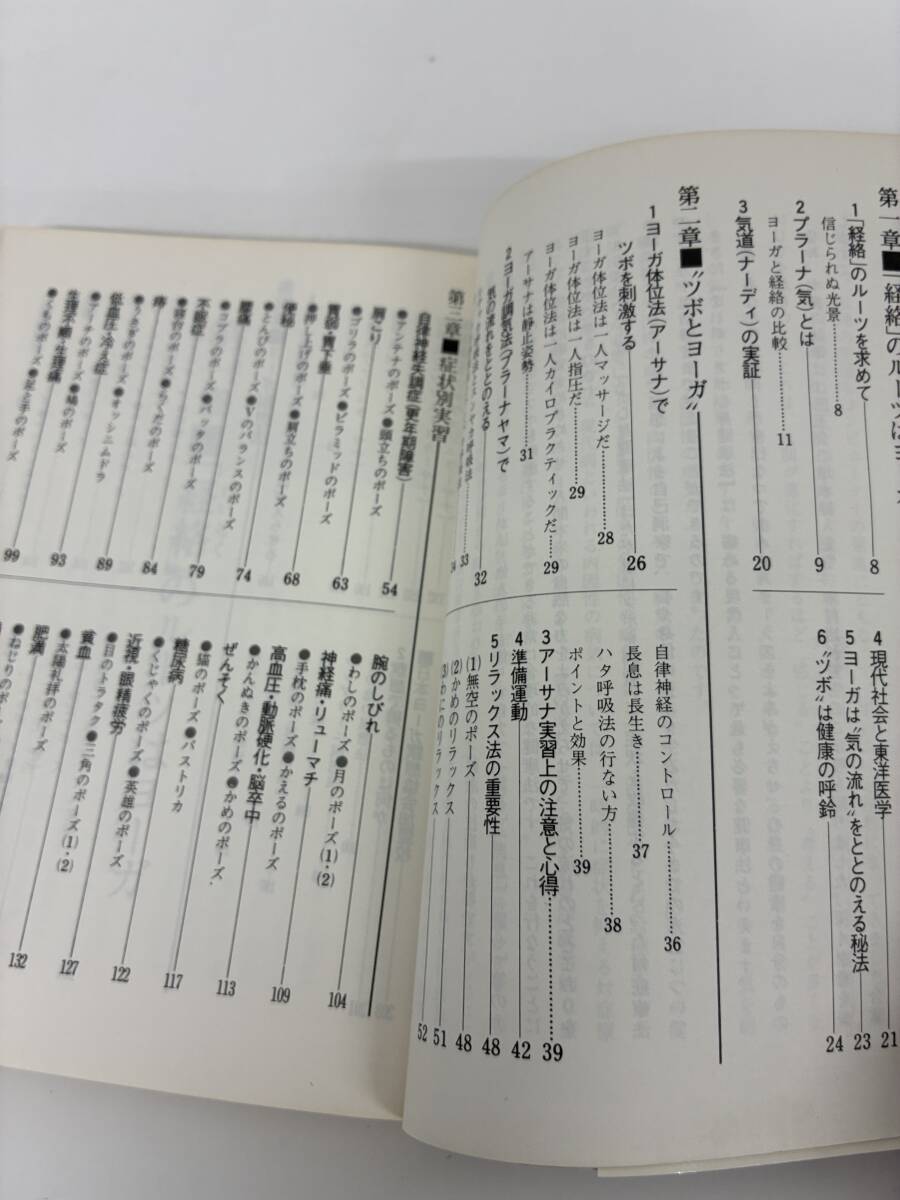 第一章■「経絡」のルーツは
1「経絡」のルーツを求めて 8
信じられぬ光景 8
2プラーナ(気)とは 9
ヨーガと経絡の比較 11
3気道(ナーディ)の実証 20
4現代社会と東洋医学 21
5ヨーガは“気の流れ”をととのえる秘法 23
6“ツボ”は健康の呼鈴 24
第二章■“ツボとヨーガ”
1ヨーガ体位法(アーサナ)で
ツボを刺激する 26
ヨーガ体位法は一人マッサージだ 28
ヨーガ体位法は一人指圧だ 29
ヨーガ体位法は一人カイロプラクティックだ 29
アーサナは静止姿勢 31
2ヨーガ調気法(プラーナヤマ)で
気の流れをととのえる 32
33
34
自律神経のコントロール 36
長息は長生き 37
ハタ呼吸法の行ない方 38
ポイントと効果 39
3アーサナ実習上の注意と心得 39
4準備運動 42
5リラックス法の重要性 48
(1)無空のポーズ 48
(2)かめのリラックス 51
(3)わにのリラックス 52
第三章■症状別実習
自律神経失調症(更年期障害) 54
●アンテナのポーズ●頭立ちのポーズ
肩こり 63
●ゴリラのポーズ●ピラミッドのポーズ
胃弱・胃下垂 68
●押し上げのポーズ●肩立ちのポーズ
便秘 74
●とんびのポーズ●Vのバランスのポーズ
腰痛 79
●コブラのポーズ●バッタのポーズ
不眠症 84
●寝台のポーズ●らくだのポーズ
痔 89
●うさぎのポーズ●オッシニムドラ
低血圧・冷え症 93
●アーチのポーズ●橋のポーズ
生理不順・生理痛 99
●くものポーズ●足と手のポーズ
腕のしびれ 104
●わしのポーズ●月のポーズ(1)・(2)
神経痛・リューマチ 109
●手枕のポーズ●かえるのポーズ
高血圧・動脈硬化・脳卒中 113
●かんぬきのポーズ●かめのポーズ
ぜんそく 117
●猫のポーズ●バストリカ
糖尿病 122
●くじゃくのポーズ●英雄のポーズ
近視・眼精疲労 127
●目のトラタク●三角のポーズ(1)・(2)
貧血 132
●太陽礼拝のポーズ
肥満
●ねじりのポーズ